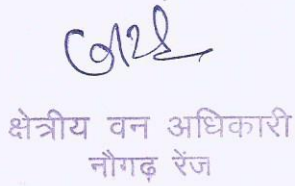 क्षेत्रीय वन अधिकारी
नौगढ़ रेंज